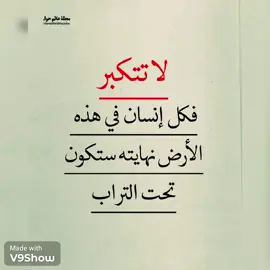 لا تتكبر
فكل إنسان في هذه
الأرض نهايته ستكون
تحت التراب
Made with
V9Show